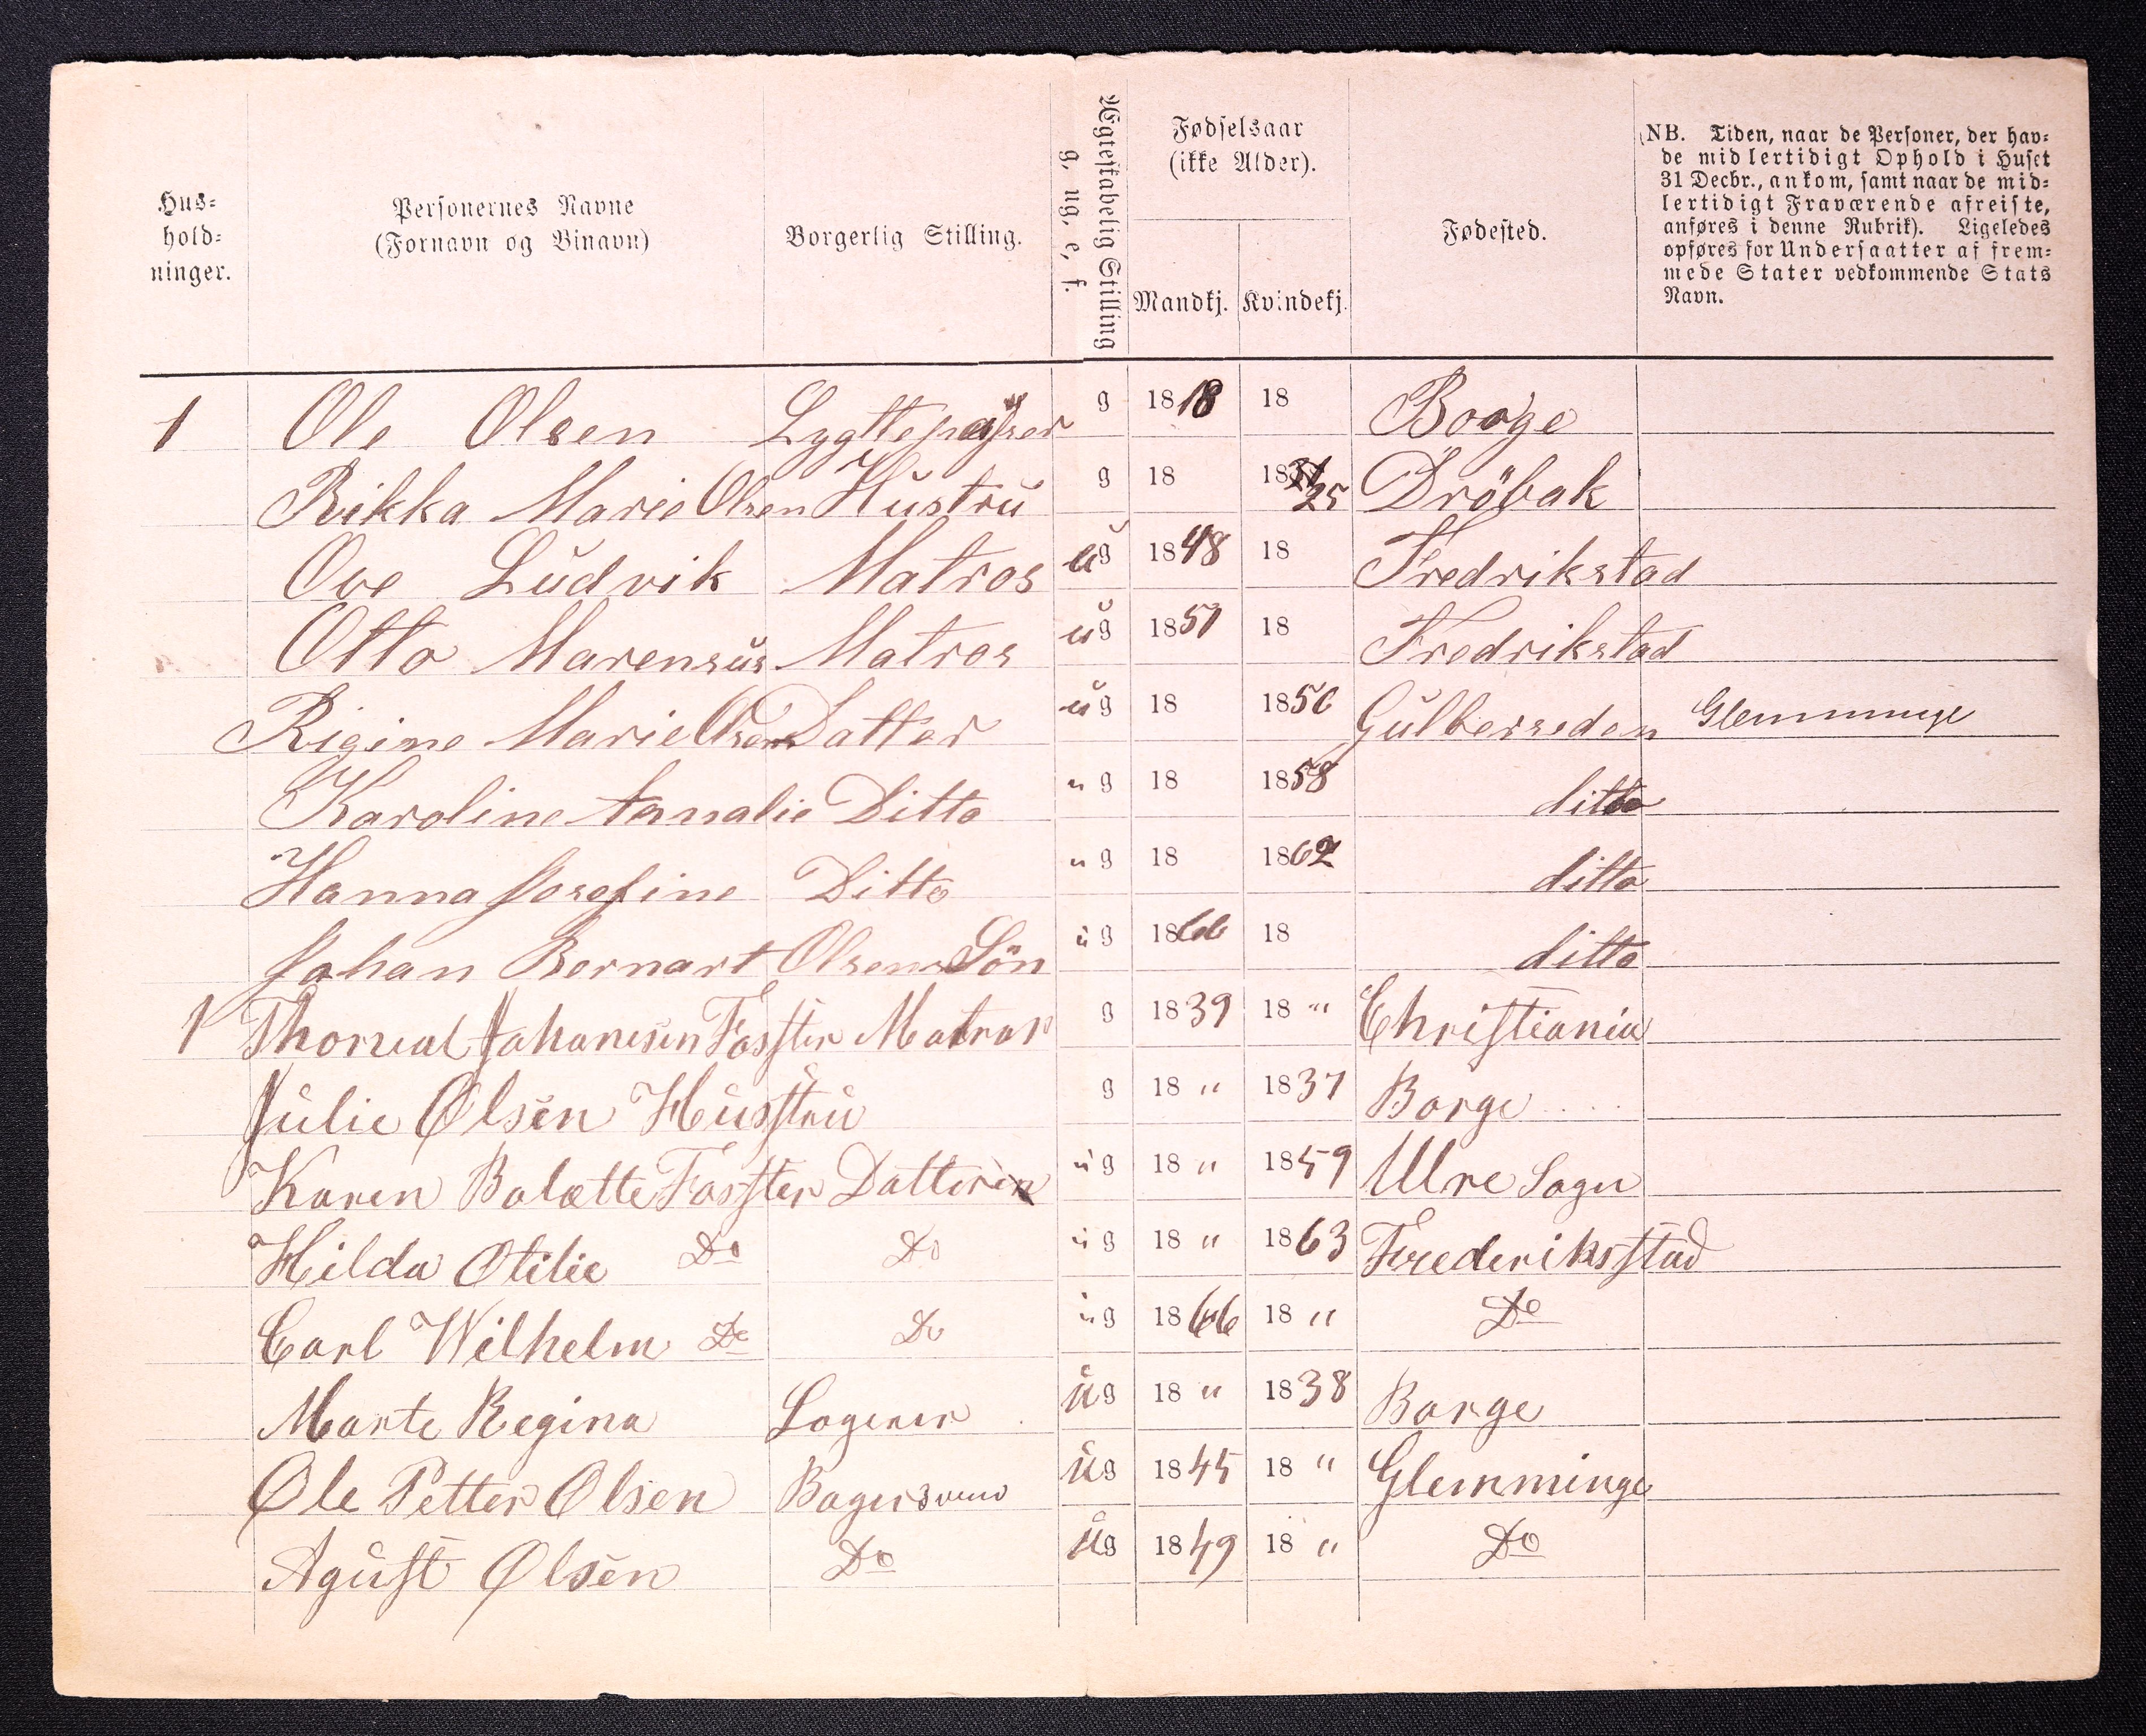 Hus-
hold-
ninger.
Personernes Navne
(Fornavn og Binavn)
Borgerlig Stilling.
Ægteskabelig Stilling
g, ug, e, f.
Fødselsaar
(ikke Alder).
Mandkj. Kvindekj.
Fødested.
(NB. Tiden, naar de Personer, der hav-
de midlertidigt Ophold i Huset
31 Decbr., ankom, samt naar de mid-
lertidigt Fraværende afreiste,
anføres i denne Rubrik). Ligeledes
opføres for Undersaatter af frem-
mede Stater vedkommende Stats
Navn.
1 Ole Olsen g 1818 18 Borge
Rikka Marie Olsen Hustru g 18 1825 Dröbak
Ove Ludvik Matros ug 1848 18 Fredrikstad
Otto Marensus Matros ug 1851 18 Fredrikstad
Rigine Marie Olsen Datter ug 18 1856 Gulberseden Glemminge
Karoline Ditto ug 18 1858 ditto
Hanna Josefine Ditto ug 18 1862 ditto
Johan Bernart Olsen Sön ug 1866 18 ditto
1 Johanesen Fosster Matros g 1839 18 " Christiania
Julie Olsen Husstru g 18 " 1837 Borge
Karen Bolætte Fosster ug 18 " 1859 Sogn
Hilda Otilie Do Do ug 18 " 1863 Frederiksstad
Carl Wilhelm Do Do ug 1866 18 " Do
Marte Regina ug 18 " 1838 Borge
Ole Petter Olsen Bagersvend ug 1845 18 " Glemminge
Agust Olsen Do ug 1849 18 " Do